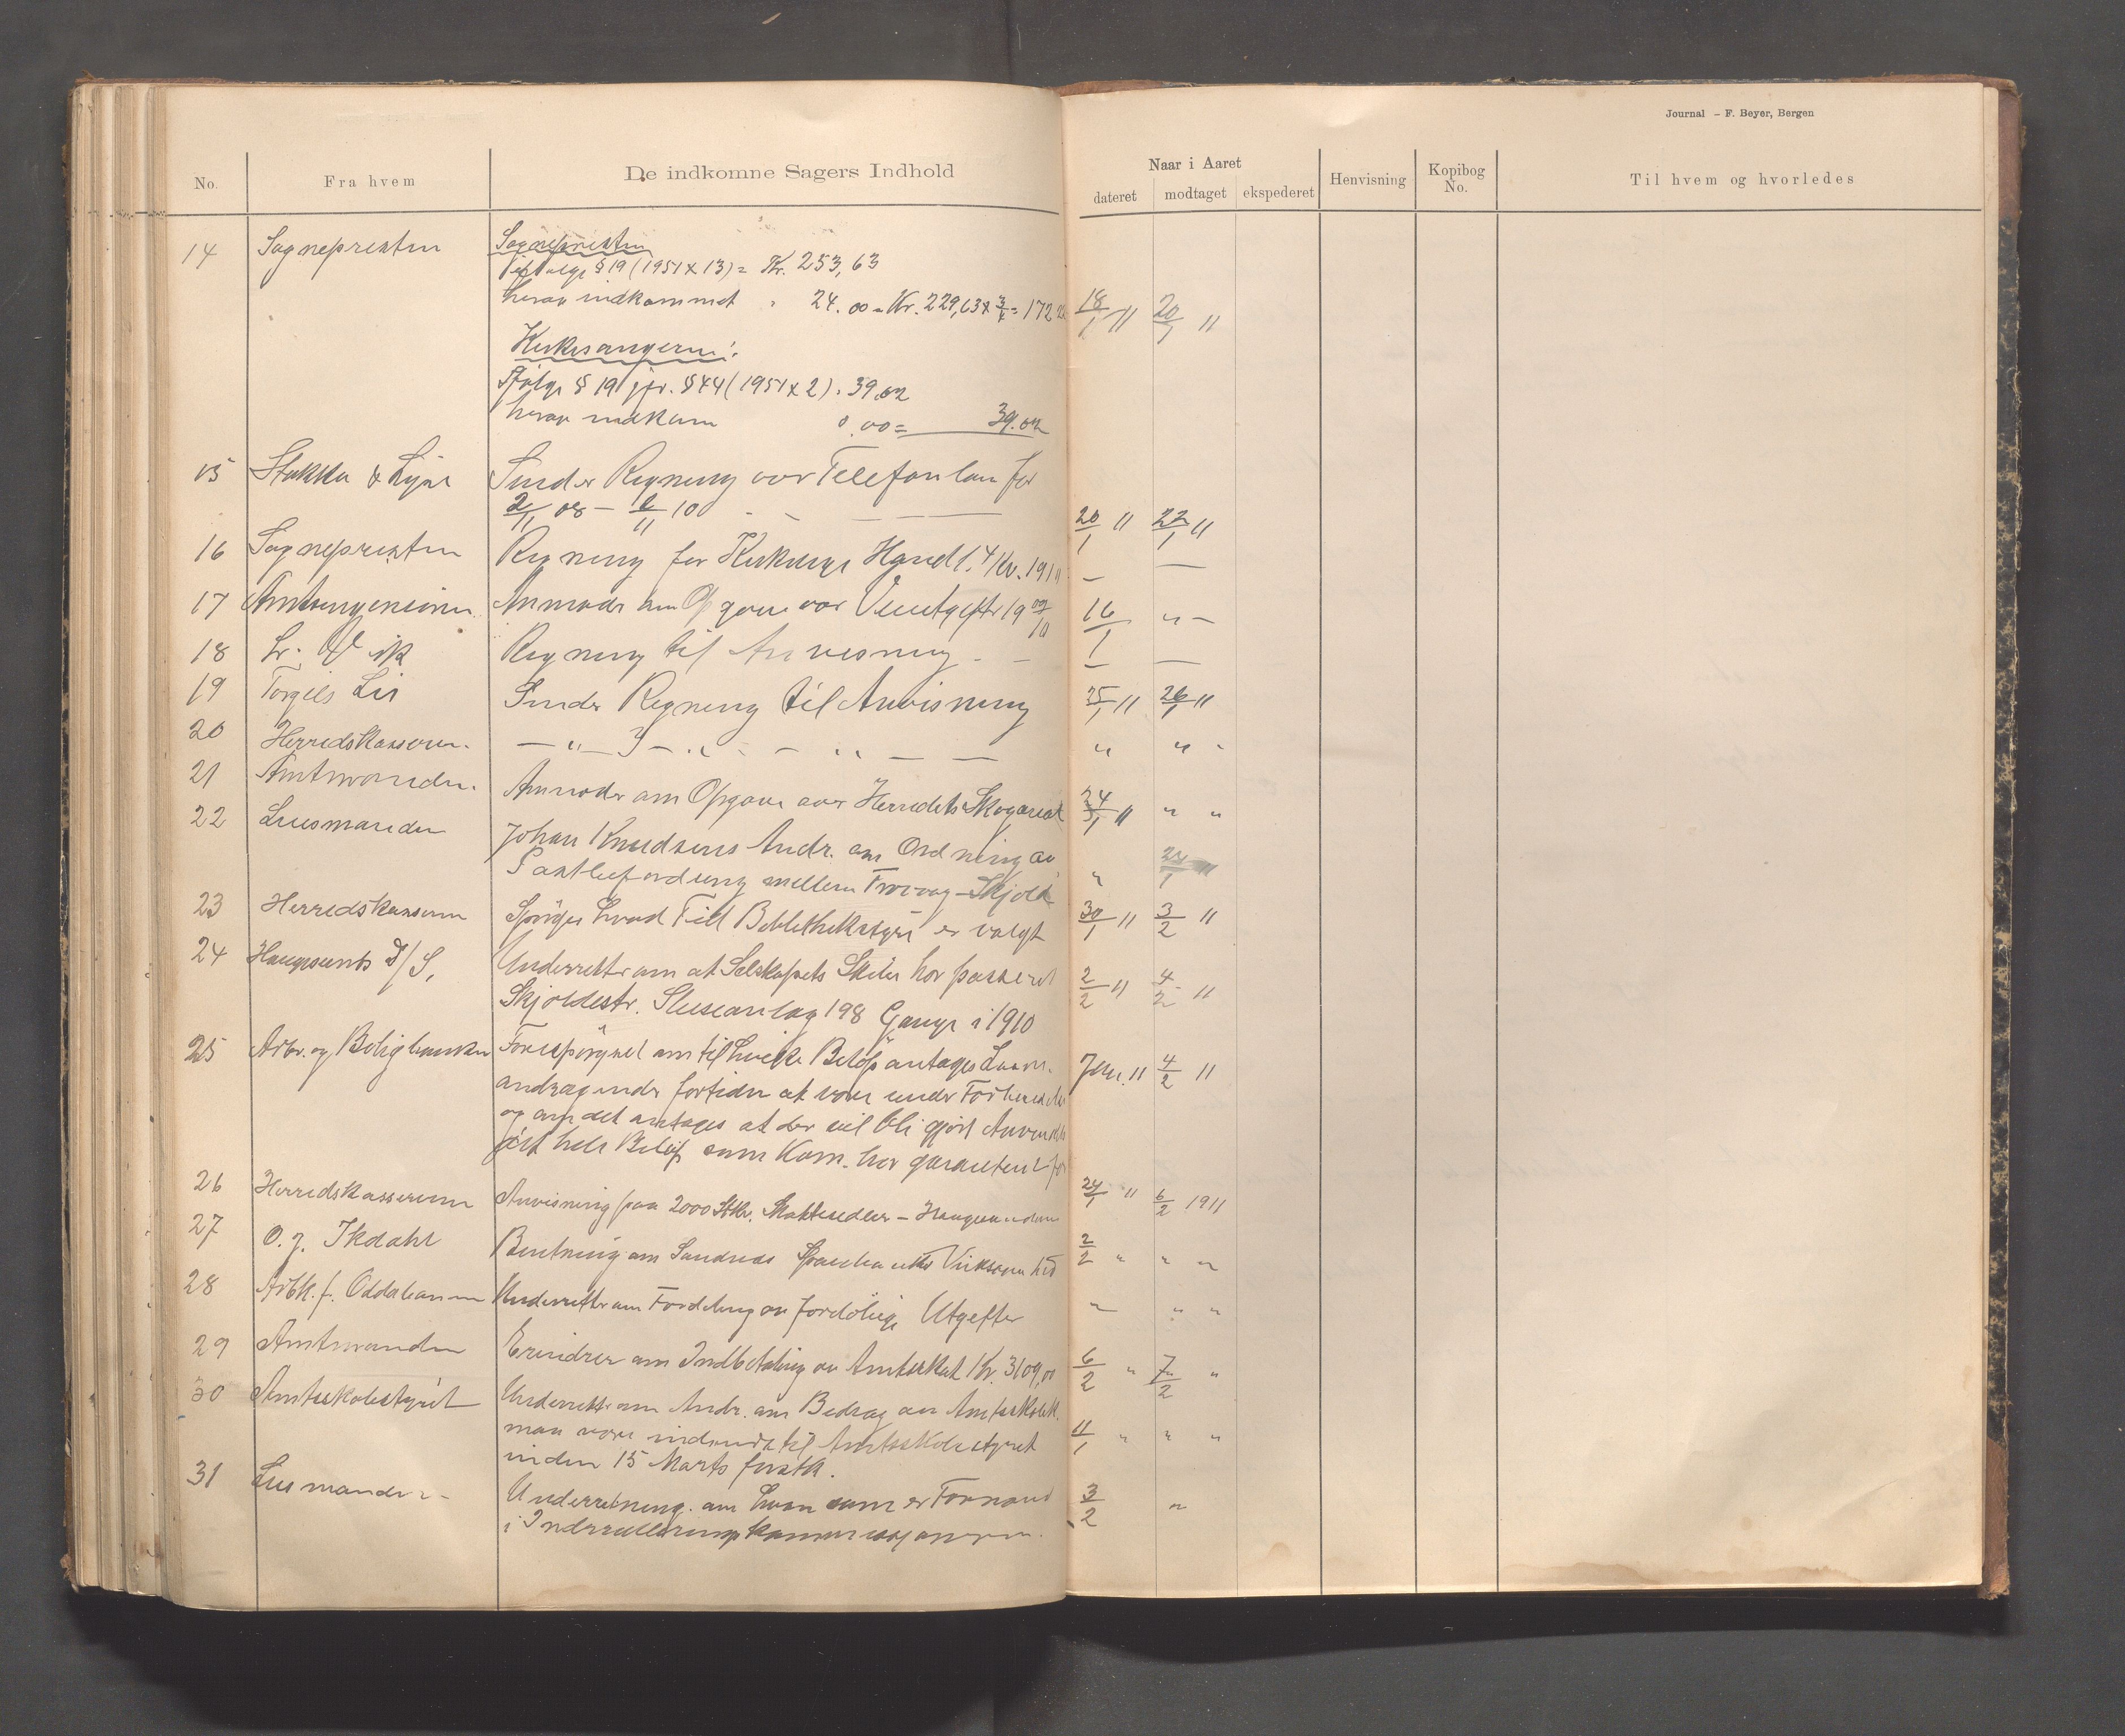 Journal – F. Beyer, Bergen
No. Fra hvem De indkomne Sagers Indhold Naar i Aaret dateret modtaget ekspederet Henvisning Kopibog No. Til hvem og hvorledes
14 Sognepresten Sognepresten
§ 19 (1951 x 13) = Kr. 253,63
herav indkommet " 24.00 = Kr. 229,63 x 3/4 = 172 18/1 11 20/1 11
Kirkesangeren:
Ifølge § 19 jfr. § 44 (1951 x 2) = 39.02
herav indkom 0.00 = 39.02
15 Stakka & Lyse Sender Regning vor Telefonlaan for
2/11 08 – 2/11 10 20/1 11 22/1 11
16 Sognepresten Regning for Kirkelige Handl. 4 Kv. 1910 — —
17 Amtsingeniøren Anmoder om Opgave over Veiutgifter 19 09/10 16/1 " –
18 L. Vik Regning til Anvisning — — —
19 Torgils Lie Sender Regning til Anvisning 25/1 11 26/1 11
20 Herredskasseren — " — 3 — " — " — — " " "
21 Amtmanden Anmoder om Opgave over Herredets Skogareal 24/1 11 " "
22 Lensmanden Johan Knudsens Andr. om Ordning av
Postbefordring mellem – Skjold "
23 Herredskasseren Spørger hvad Tid Bibliothekstyre er valgt 30/1 11 3/2 11
24 Haugesunds D/S, Underretter om at Selskapets Skibe har passeret
Skjoldestr. Sluseanlæg 198 Gange i 1910 2/2 11 4/2 11
25 Arbr. og Boligbanken Forespørgsel om til hvilke Beløp antages Laan-
andragender fortiden at være under Forberedelse
og om det antages at der vil bli gjort Anvendelse
for det hele Beløp som Kom. har garantert for Jan. 11 4/2 11
26 Herredskasseren Anvisning paa 2000 Stkr. Skattesedler – Haugesunderen 24/1 11 6/2 1911
27 O. J. Ikdahl Beretning om Sandeids Sparebank 2/2 " " "
28 Arbk. f. Oddabanen Underretter om Fordeling av foreløbige Utgifter " " "
29 Amtmanden Erindrer om Indbetaling av Amtsskat Kr. 3109,00 6/2 " 7/2 "
30 Amtsskolestyret Underretter om Andr. om Bidrag av Amtsskolek.
maa være indsendt til Amtsskolestyret
inden 15 Marts førstk. 11/1 " " "
31 Lensmanden – Underretning om hvem som er Formand
i Indrulleringskommissjonen. 3/2 "